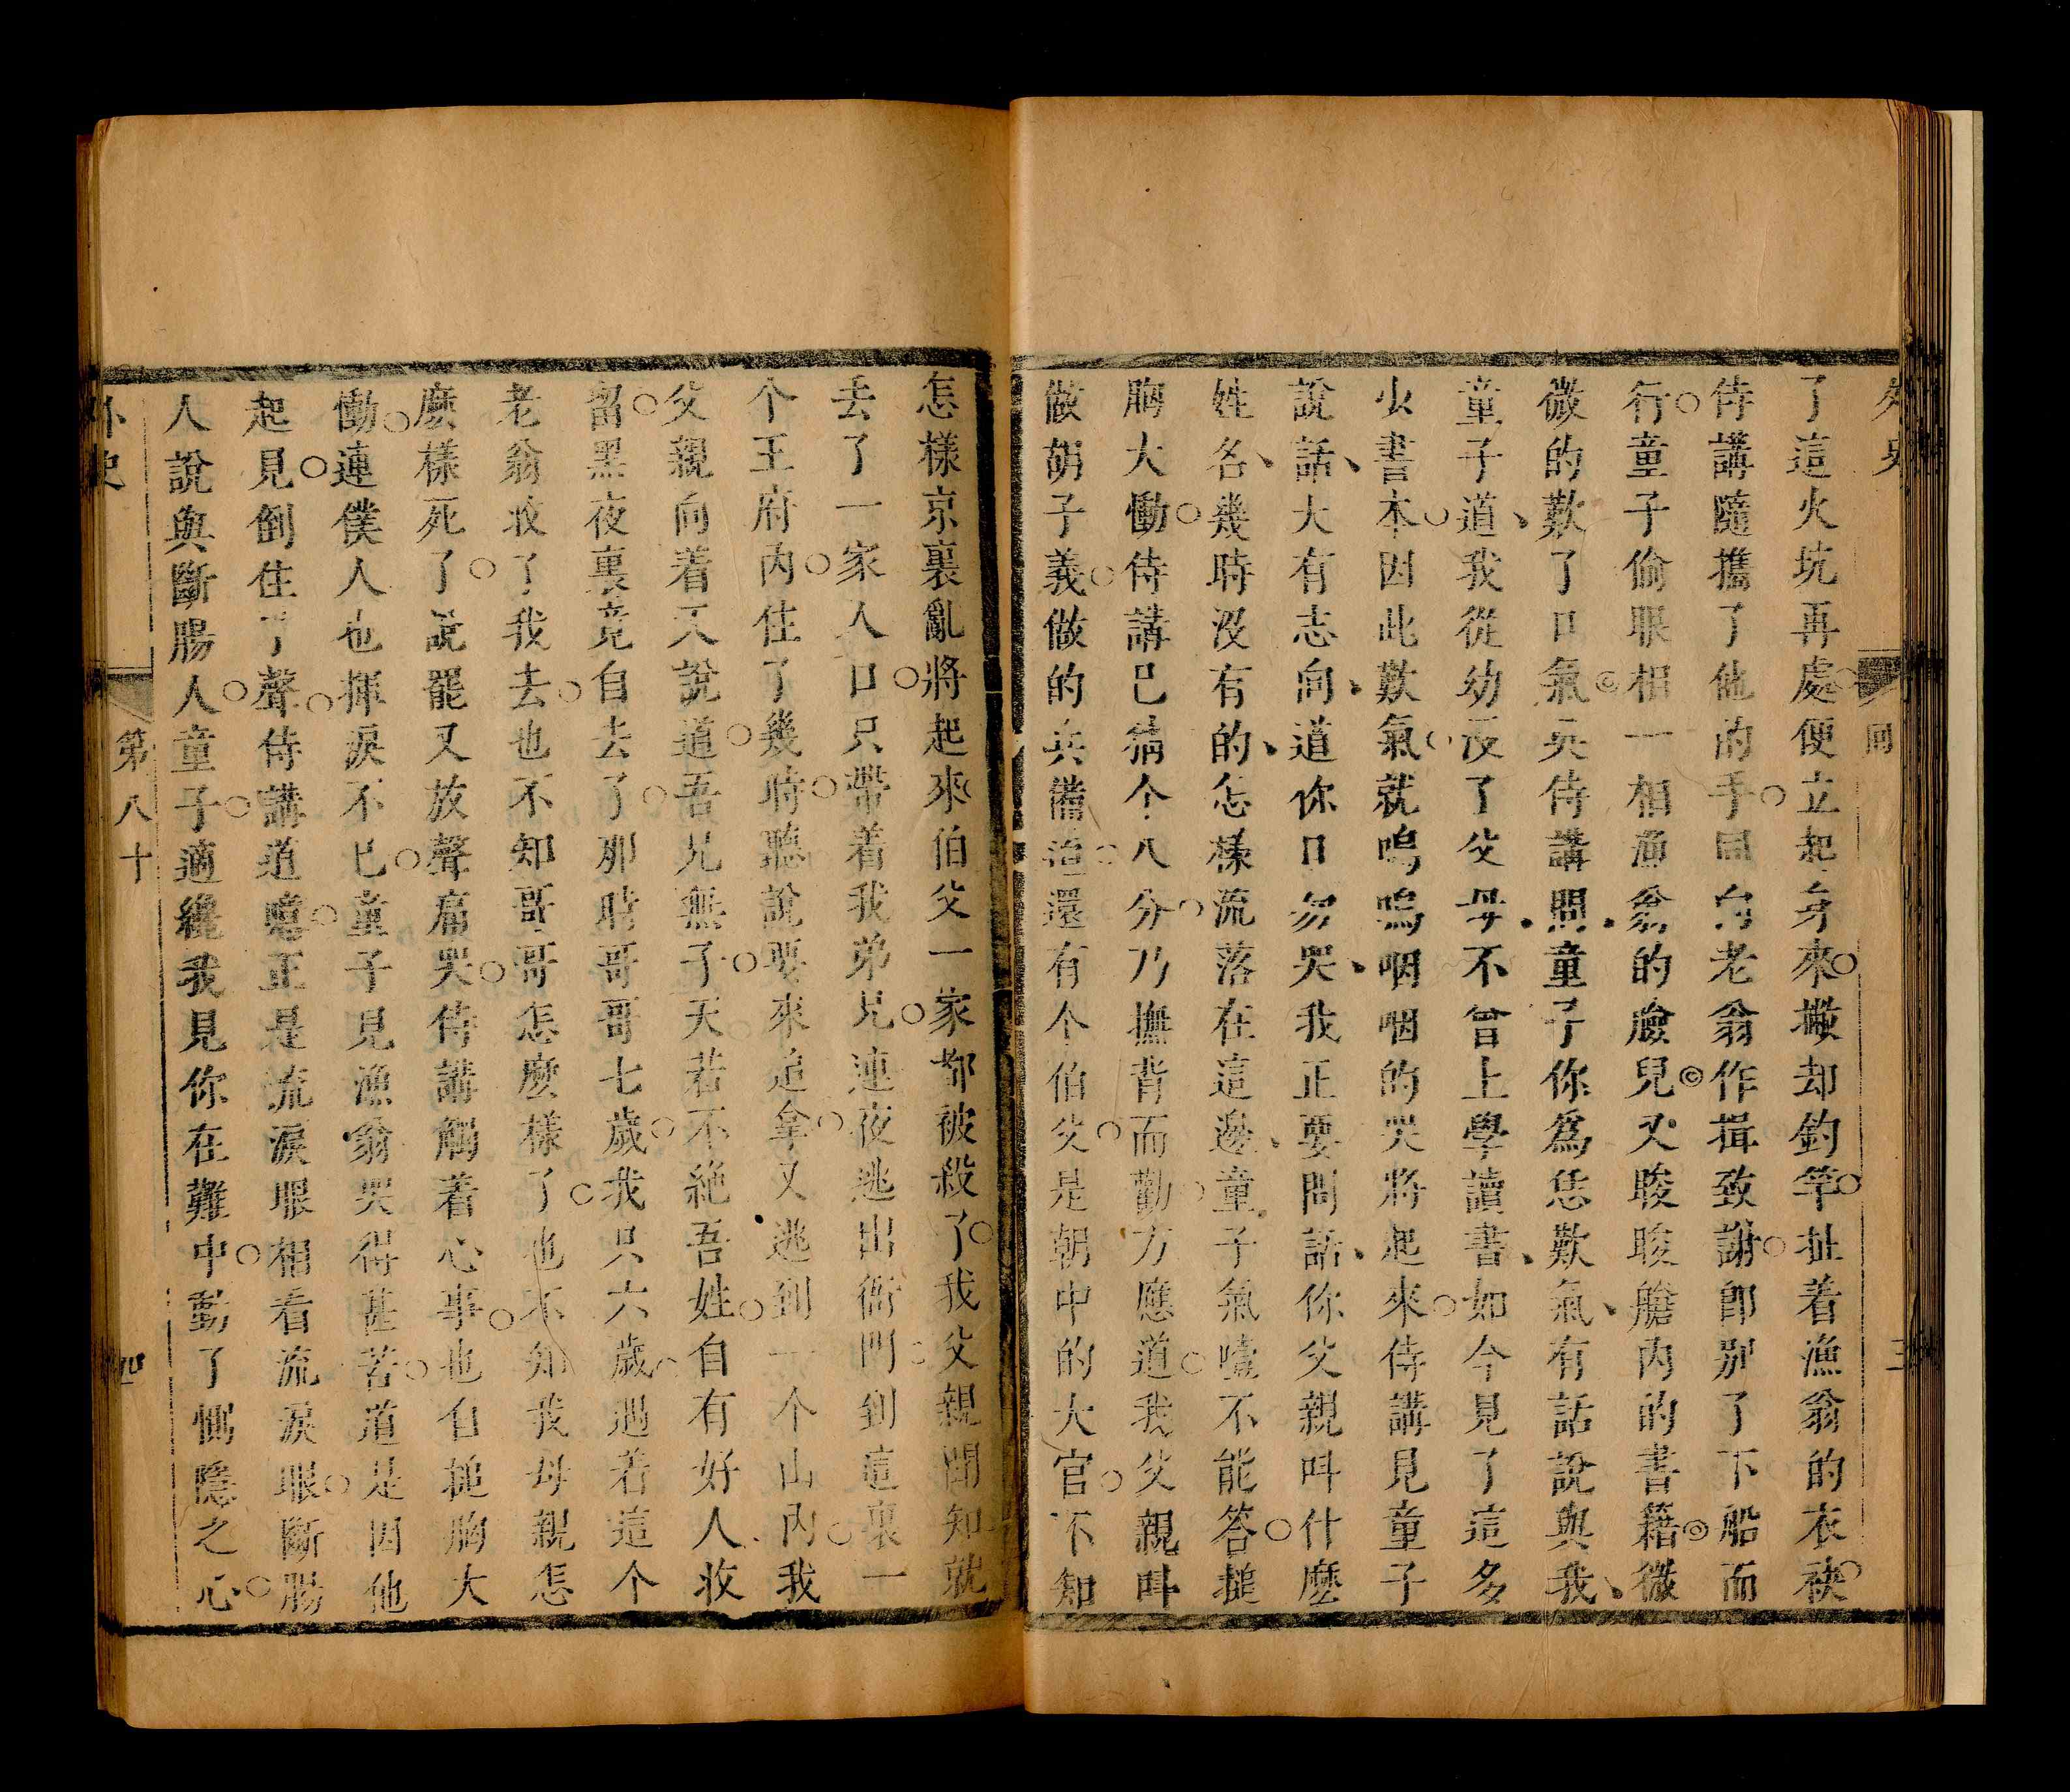 外史
回
三
了這火坑再處便立起身來撇却釣竿扯着漁翁的衣袂
侍講隨攜了他的手同向老翁作揖致謝卽別了下船而
行童子偷眼相一相漁翁的臉兒又睃睃艙內的書籍微
微的歎了口氣天侍講問童子你爲恁歎氣有話說與我
童子道我從幼沒了父母不曾上學讀書如今見了這多
少書本因此歎氣就嗚嗚咽咽的哭將起來侍講見童子
說話大有志向道你且勿哭我正要問話你父親呌什麼
姓名幾時沒有的怎樣流落在這邊童子氣噎不能答搥
胸大慟侍講已猜个八分乃撫背而勸方應道我父親呌
做胡子義做的兵備道還有个伯父是朝中的大官不知
怎樣京裏亂將起來伯父一家都被殺了我父親聞知就
去了一家人口只帶着我弟兄連夜逃出衙門到這裏一
个王府內住了幾時聽說要來追拿又逃到一个山內我
父親向着天說道吾兄無子天若不絶吾姓自有好人收
留黑夜裏竟自去了那時哥哥七歲我只六歲遇着這个
老翁收了我去也不知哥哥怎麼樣了也不知我母親怎
麼樣死了說罷又放聲痛哭侍講觸着心事也自搥胸大
慟連僕人也揮淚不已童子見漁翁哭得甚苦道是因他
起見倒住了聲侍講道噫正是流淚眼相看流淚眼斷腸
人說與斷腸人童子適纔我見你在難中動了惻隱之心
外史
第八十
四